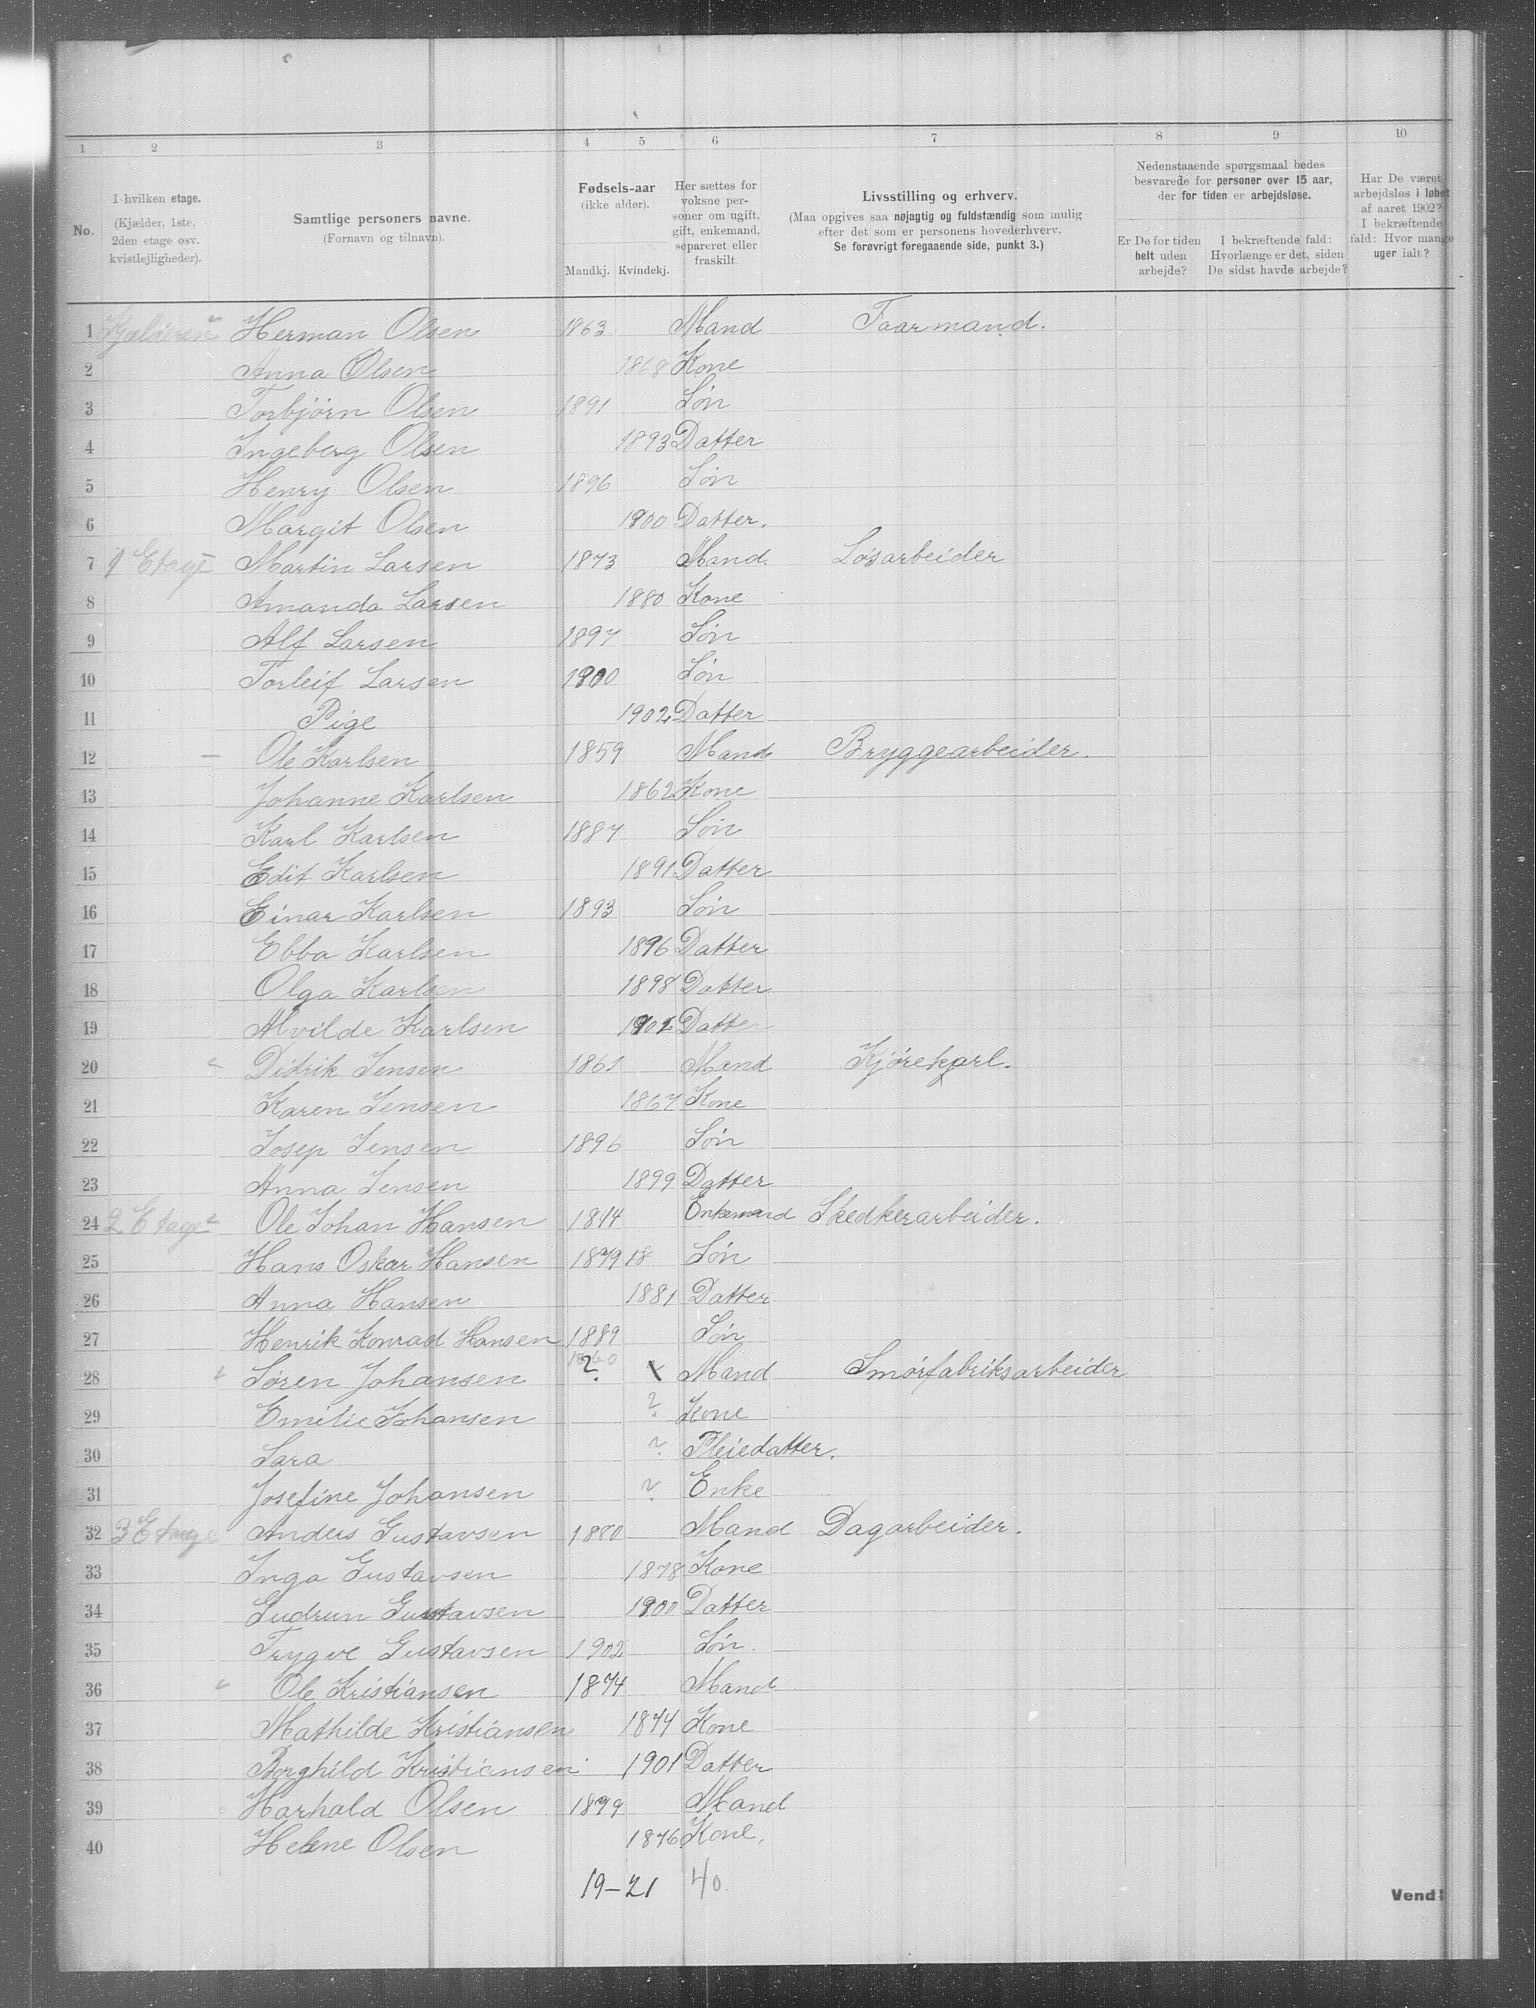 1 2 3 4 5 6 7 8 9 10
No.
I hvilken etage.
(Kjælder, 1ste, 2den etage osv. kvistlejligheder).
Samtlige personers navne.
(Fornavn og tilnavn).
Fødsels-aar
(ikke alder).
Mandkj. Kvindekj.
Her sættes for voksne personer om ugift, gift, enkemand, separeret eller fraskilt.
Livsstilling og erhverv.
(Maa opgives saa nøjagtig og fuldstændig som mulig efter det som er personens hovederhverv.
Se forøvrigt foregaaende side, punkt 3.)
Nedenstaaende spørgsmaal bedes besvarede for personer over 15 aar, der for tiden er arbejdsløse.
Er De for tiden helt uden arbejde?
I bekræftende fald: Hvorlænge er det, siden De sidst havde arbejde?
Har De været arbejdsløs i løbet af aaret 1902? I bekræftende fald: Hvor mange uger ialt?
1 Kjælderen Herman Olsen 1863 Mand Faarmand.
2 Anna Olsen 1868 Kone
3 Torbjörn Olsen 1891 Søn
4 Ingeberg Olsen 1893 Datter
5 Henry Olsen 1896 Søn
6 Margit Olsen 1900 Datter.
7 1 Etage Martin Larsen 1873 Mand. Løsarbeider
8 Amanda Larsen 1880 Kone
9 Alf Larsen 1897 Søn
10 Torleif Larsen 1900 Søn
11 Pige 1902 Datter
12 — Ole Karlsen 1859 Mand Bryggearbeider.
13 Johanne Karlsen 1862 Kone
14 Karl Karlsen 1887 Søn
15 Edit Karlsen 1891 Datter
16 Einar Karlsen 1893 Søn
17 Ebba Karlsen 1896 Datter
18 Olga Karlsen 1898 Datter
19 Alvilde Karlsen 1902 Datter
20 " Didrik Jensen 1861 Mand Kjørekarl.
21 Karen Jensen 1867 Kone
22 Josep Jensen 1896 Søn
23 Anna Jensen 1899 Datter
24 2 Etage Ole Johan Hansen 1844 Enkemand Skedkerarbeider.
25 Hans Oskar Hansen 1879 18 Søn
26 Anna Hansen 1881 Datter
27 Henrik Konrad Hansen 1889 Søn
28 " Søren Johansen 1860 ? Mand Smørfabriksarbeider
29 Emilie Johansen ? Kone
30 Sara ? Pleiedatter.
31 Josefine Johansen ? Enke
32 3 Etage Anders Gustavsen 1880 Mand Dagarbeider.
33 Inga Gustavsen 1878 Kone
34 Gudrun Gustavsen 1900 Datter
35 Trygve Gustavsen 1902 Søn.
36 " Ole Kristiansen 1874 Mand
37 Mathilde Kristiansen 1877 Kone
38 Borghild Kristiansen 1901 Datter
39 Harhald Olsen 1879 Mand
40 Helene Olsen 1876 Kone.
19-21 40
Vend!